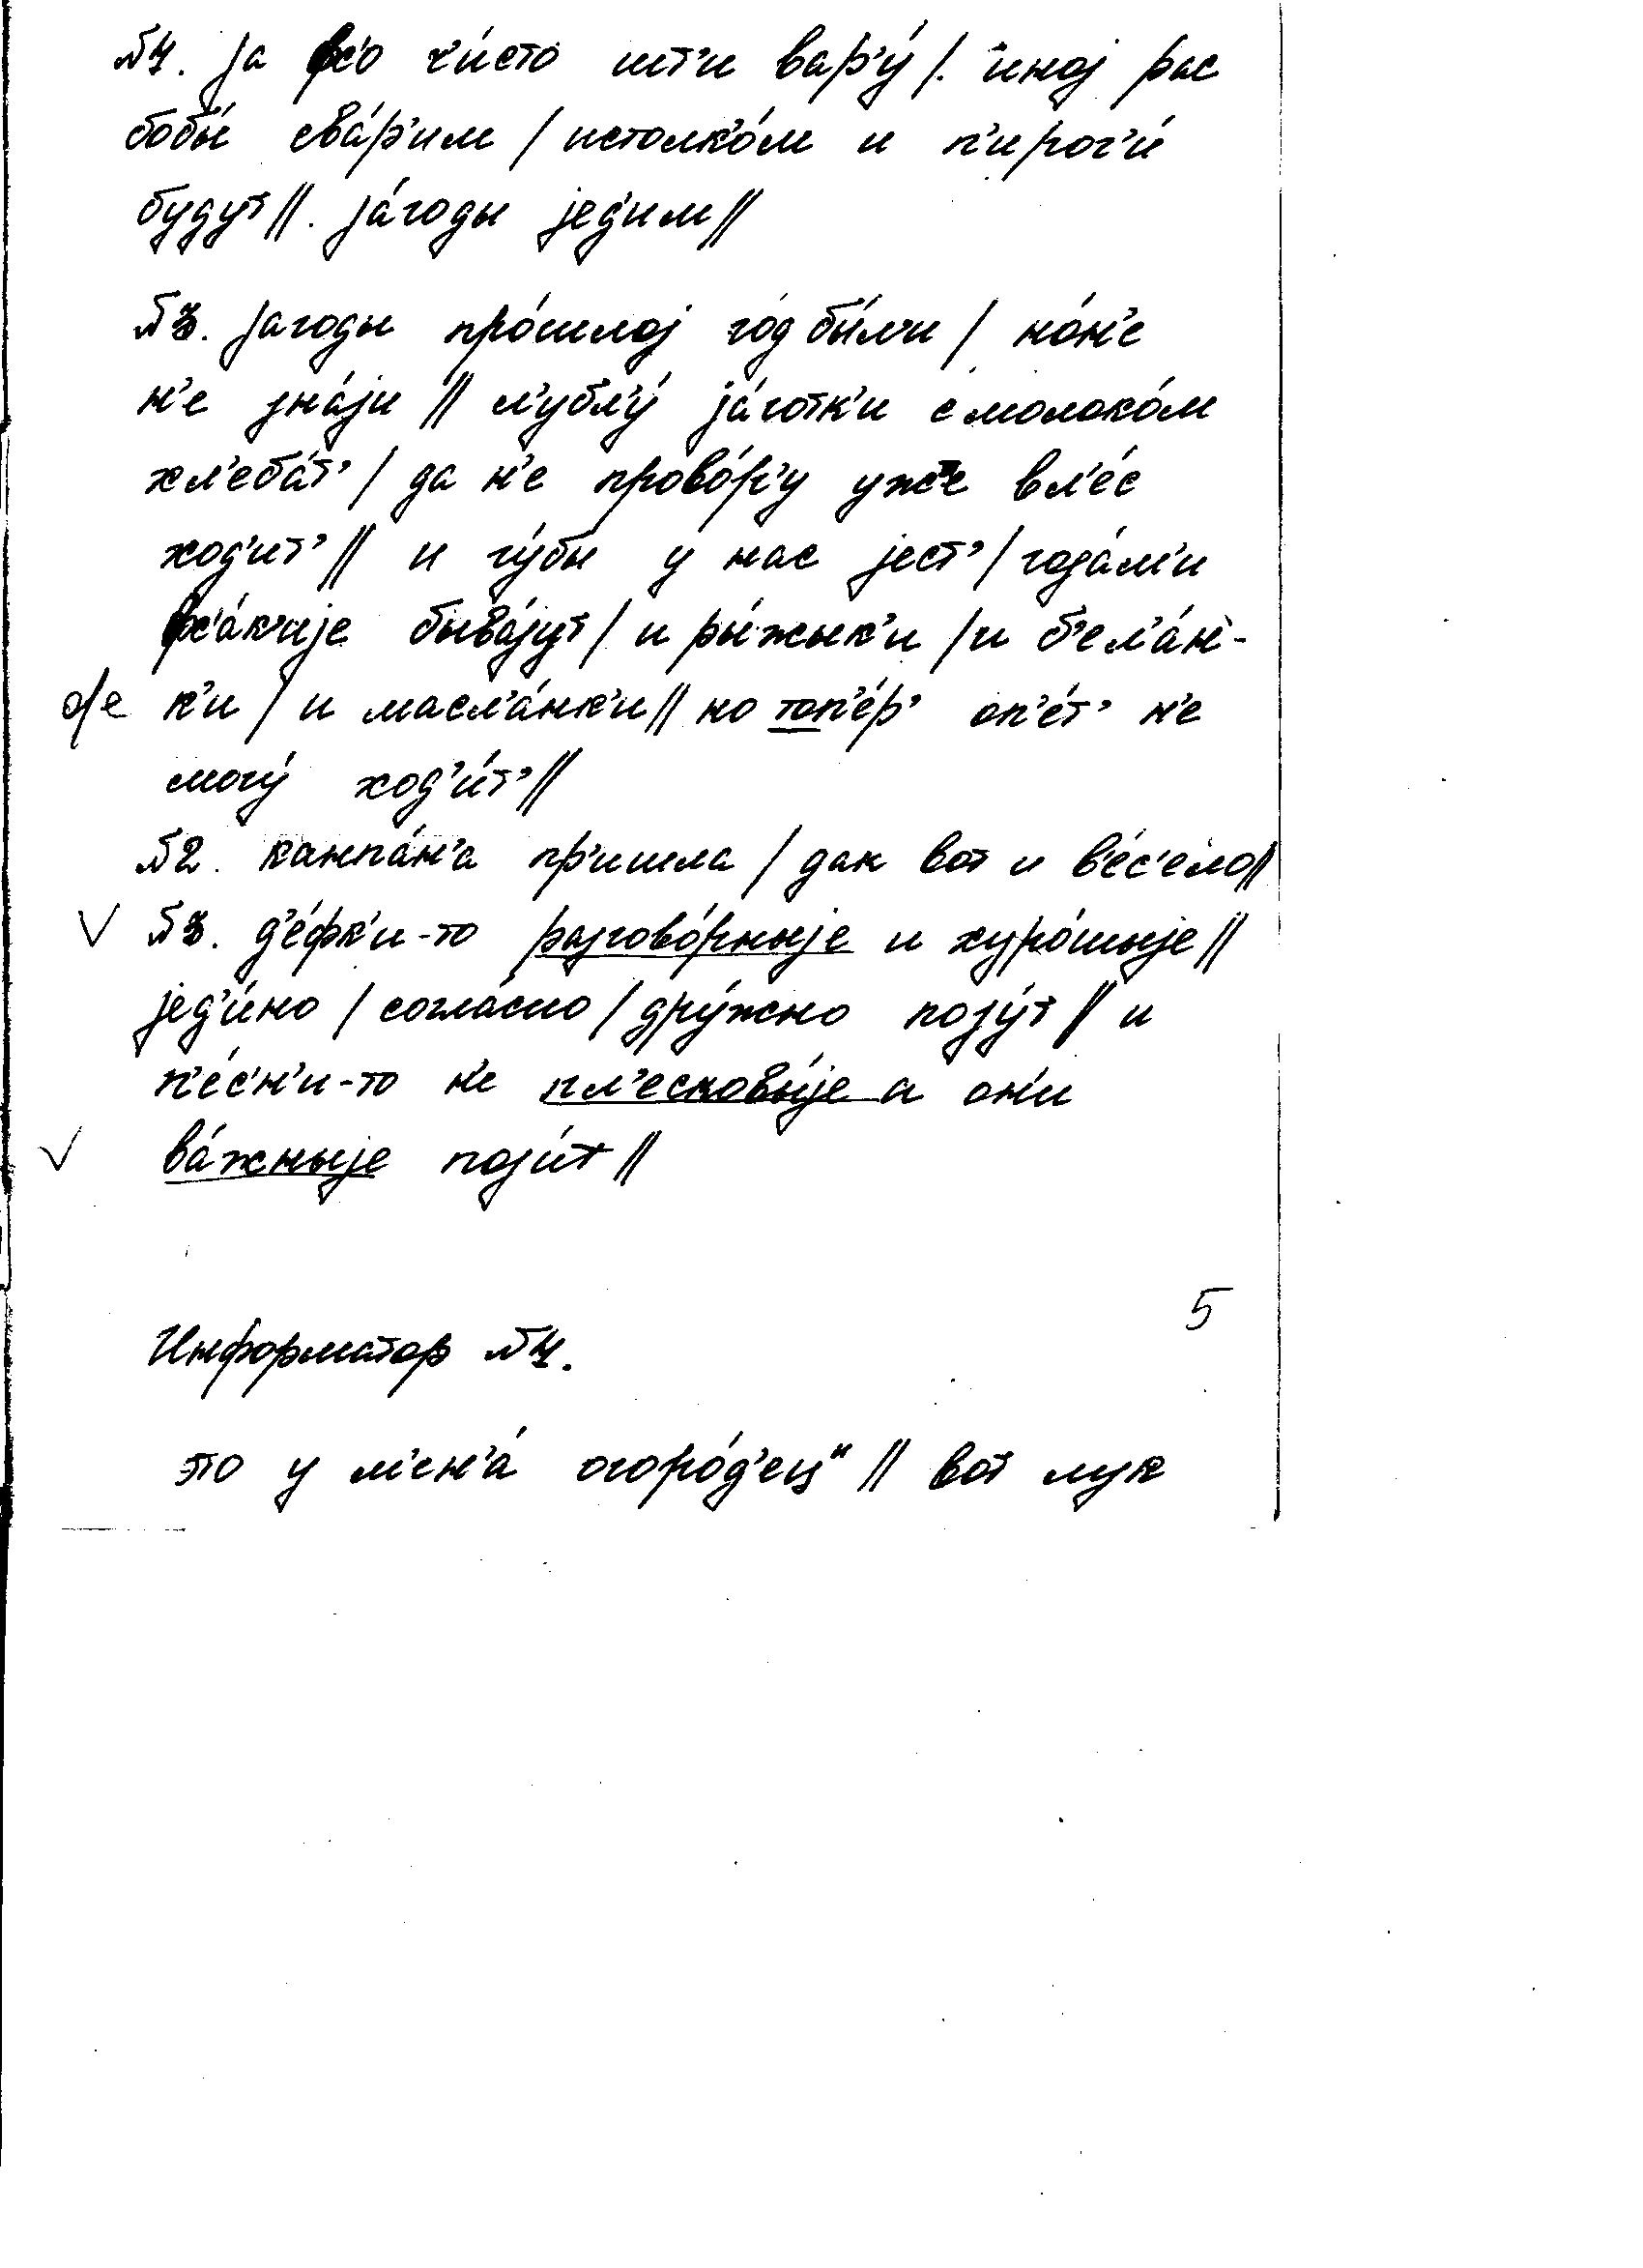 №4. jа вс'о ч'и́сто шт'и вар'у́ /. иноj рас
бобы́ сва́р'им / истолк'о́м и п'ирог'и́
будут //. jа́годы jед'им //
№3. jагоды про́шлоj го́д бы́л'и / но́н'е
н'е зна́jи // л'убл'у́ jа́готк'и с молоко́м
хл'еба́т' / да н'е прово́р'у уже в л'е́с
ход'ит' // и гу́бы у нас jест' / года́м'и
вс'а́к'иjе быва́jут / и ры́жык'и / и б'ел'а́н-
о/е к'и / и масл'а́нк'и // но топ'е́р' оп'е́т' н'е
могу́ ход'и́т' //
№2. канпа́н'а пр'ишла / дак вот и в'е́с'ело //
V №3. д'е́фк'и-то разгово́рныjе и хуро́шыjе //
jед'и́но / согла́сно / дру́жно поjу́т // и
п'е́с'н'и-то н'е пл'есковы́jе а он'и
V ва́жныjе поjи́т //
5
Информатор №4.
это у м'ен'а́ огоро́д'ец" // вот лук